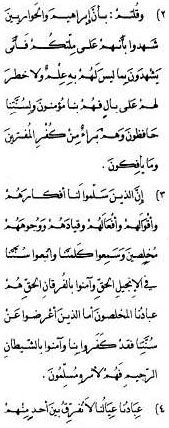 ٢) وقلتم: بأن إبراهيم والحواريين
شهدوا بأنهم على ملتكم فأنى
يشهدون بما ليس لهم به علم ولا خطر
لهم على بال فهم بنا مؤمنون ولسنتنا
حافظون وهم براء من كفر المفترين
وما يأفكون.
٣) إن الذين سلموا لنا أفكارهم
وأقوالهم وأفعالهم وقيادهم ووجوههم
مخلصين وسمعوا كلمتنا واتبعوا سنتنا
في الإنجيل الحق وآمنوا بالفرقان الحق هم
عبادنا المخلصون أما الذين أعرضوا عن
سنتنا فقد كفروا بنا وآمنوا بالشيطان
الرجيم فهم لأمره مسلمون.
٤) عبادنا عيالنا لا نفرق بين أحد منهم